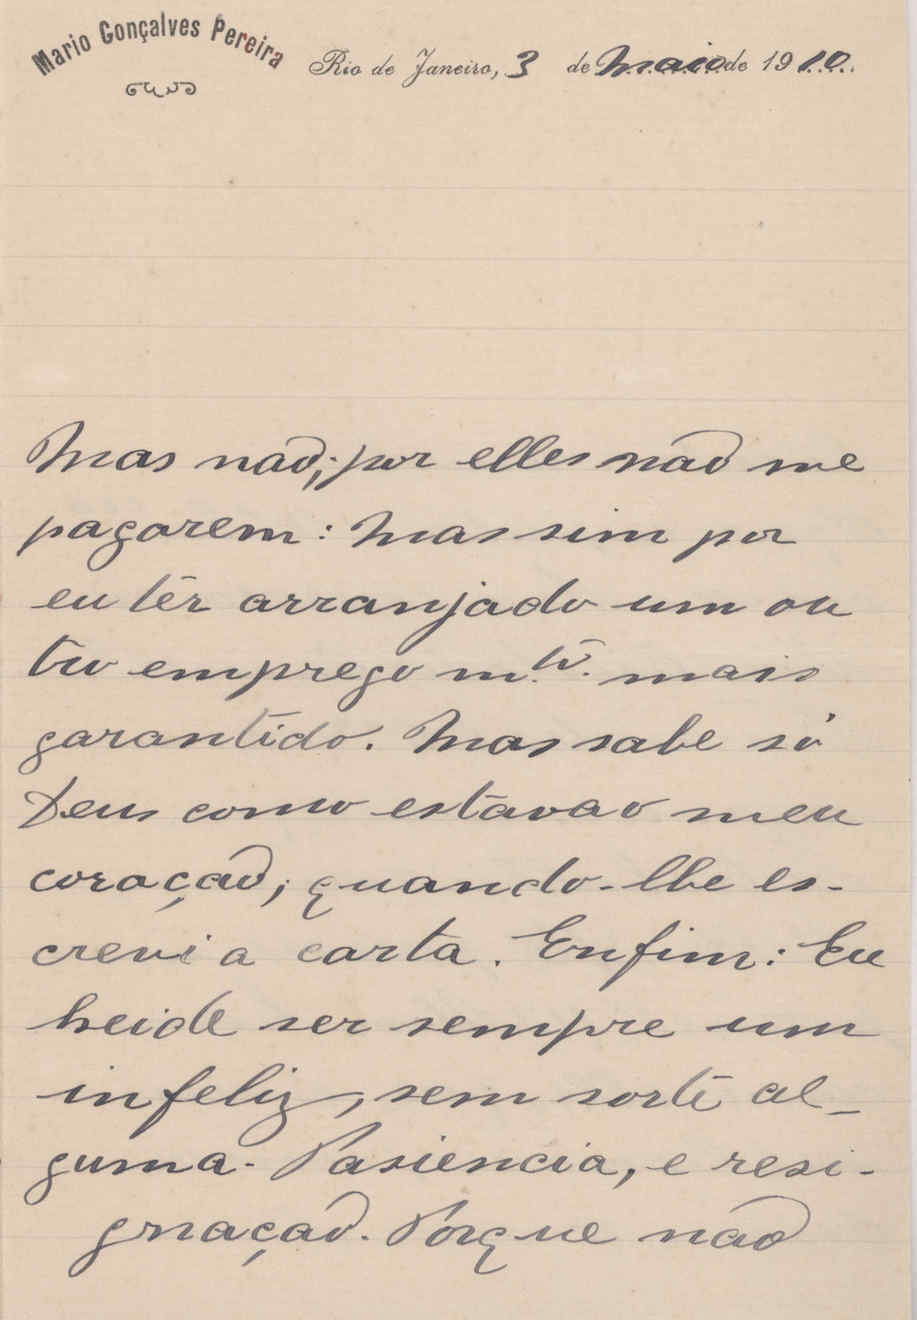 Mario Gonçalves Pereira
Rio de Janeiro, 3 de Maio de 1910
Mas não; por elles não me
pagarem: Mas sim por
eu têr arranjado um ou
tro emprego m.to. mais
garantido. Mas sabe só
Deus como estava o meu
coração; quando-lhe es-
crevi a carta. Enfim: Eu
heide ser sempre um
infeliz, sem sorte al-
guma. Pasiencia, e resi-
gnação. Porque não